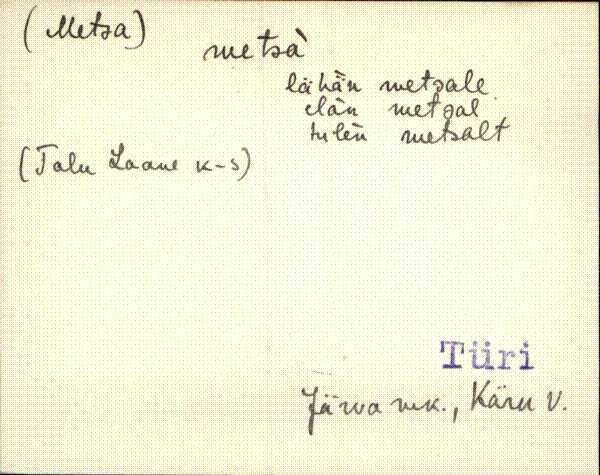 (Metsa)
metsà
lähän metsale
elän metsal
tulen metsalt
(Talu Laane k-s)
Türi
Järva mk., Käru v.